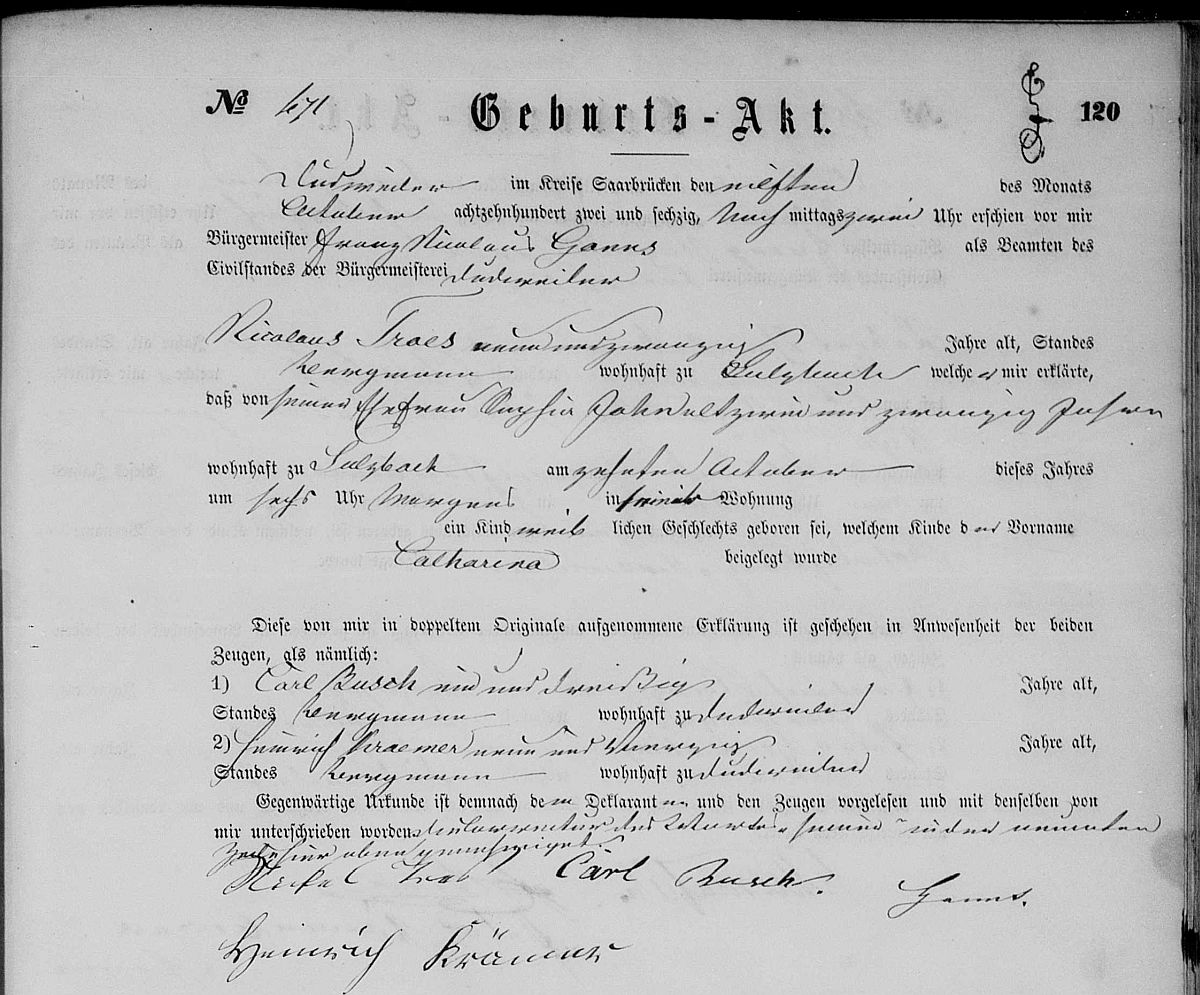 No 471 Geburts-Akt. 120
Dudweiler im Kreise Saarbrücken den eilften des Monats
October achtzehnhundert zwei und sechzig, Nach mittags zwei Uhr erschien vor mir
Bürgermeister Franz Nicolaus Ganns als Beamten des
Civilstandes der Bürgermeisterei Dudweiler
Nicolaus Traes neun und zwanzig Jahre alt, Standes
Bergmann wohnhaft zu Sulzbach welcher mir erklärte,
daß von seiner Ehefrau Sophia John alt zwei und zwanzig Jahren
wohnhaft zu Sulzbach am zehnten October dieses Jahres
um sechs Uhr Morgens in seiner Wohnung
ein Kind weib lichen Geschlechts geboren sei, welchem Kinde der Vorname
Catharina beigelegt wurde
Diese von mir in doppeltem Originale aufgenommene Erklärung ist geschehen in Anwesenheit der beiden
Zeugen, als nämlich:
1) Carl Busch ein und dreißig Jahre alt,
Standes Bergmann wohnhaft zu Dudweiler
2) Heinrich Kraemer neun und vierzig Jahre alt,
Standes Bergmann wohnhaft zu Dudweiler
Gegenwärtige Urkunde ist demnach dem Deklaranten und den Zeugen vorgelesen und mit denselben von
mir unterschrieben worden. die Correctur des Wortes "seiner" in der neunten
Zeile hier oben genehmiget.
Nickel Carl Busch. Ganns.
Heinrich Krämer